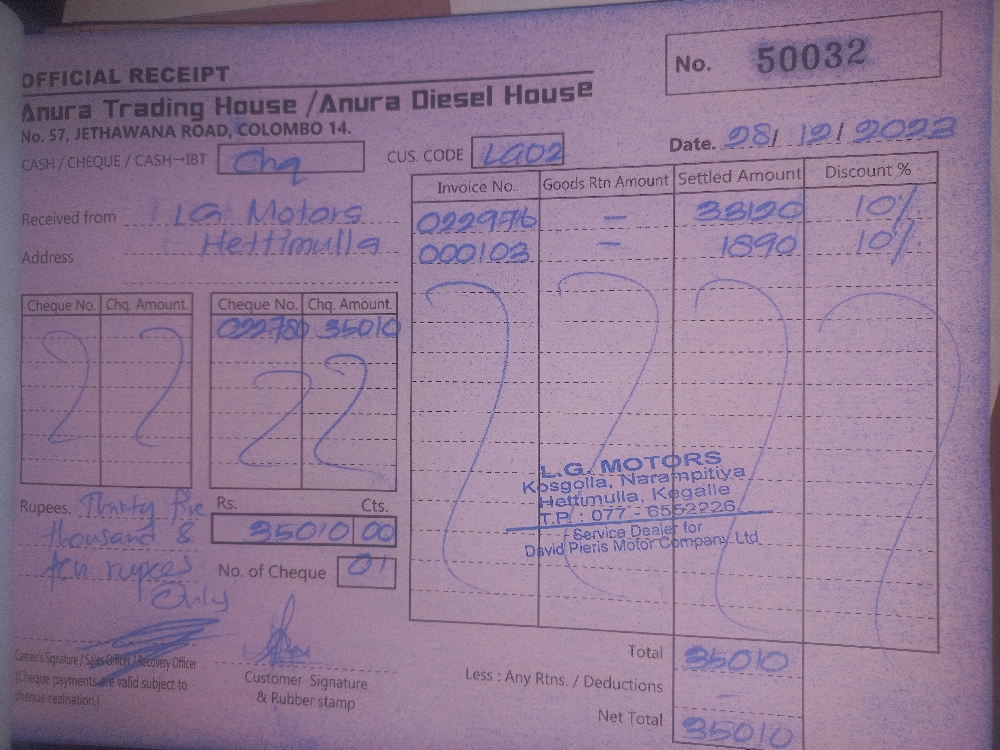 OFFICIAL RECEIPT
No. 50032
Anura Trading House /Anura Diesel House
No. 57, JETHAWANA ROAD, COLOMBO 14.
CASH / CHEQUE / CASH→IBT Chq
CUS. CODE LG02
Date. 28/ 12/ 2023
Received from LG Motors
Address Hettimulla
Invoice No. Goods Rtn Amount Settled Amount Discount %
022976 – 38120 10%
000103 – 1890 10%
Cheque No. Chq. Amount. Cheque No. Chq. Amount.
022780 35010
L.G. MOTORS
Kosgolla, Narampitiya
Hettimulla, Kegalle
T.P. : 077 - 6552226
Service Dealer for
David Pieris Motor Company Ltd
Rupees. Thirty five
thousand &
ten rupees
Only
Rs. Cts.
35010 00
No. of Cheque 01
Cashier's Signature / Sales Officer / Recovery Officer
(Cheque payments are valid subject to
cheque realisation.)
Customer Signature
& Rubber stamp
Total 35010
Less : Any Rtns. / Deductions –
Net Total 35010